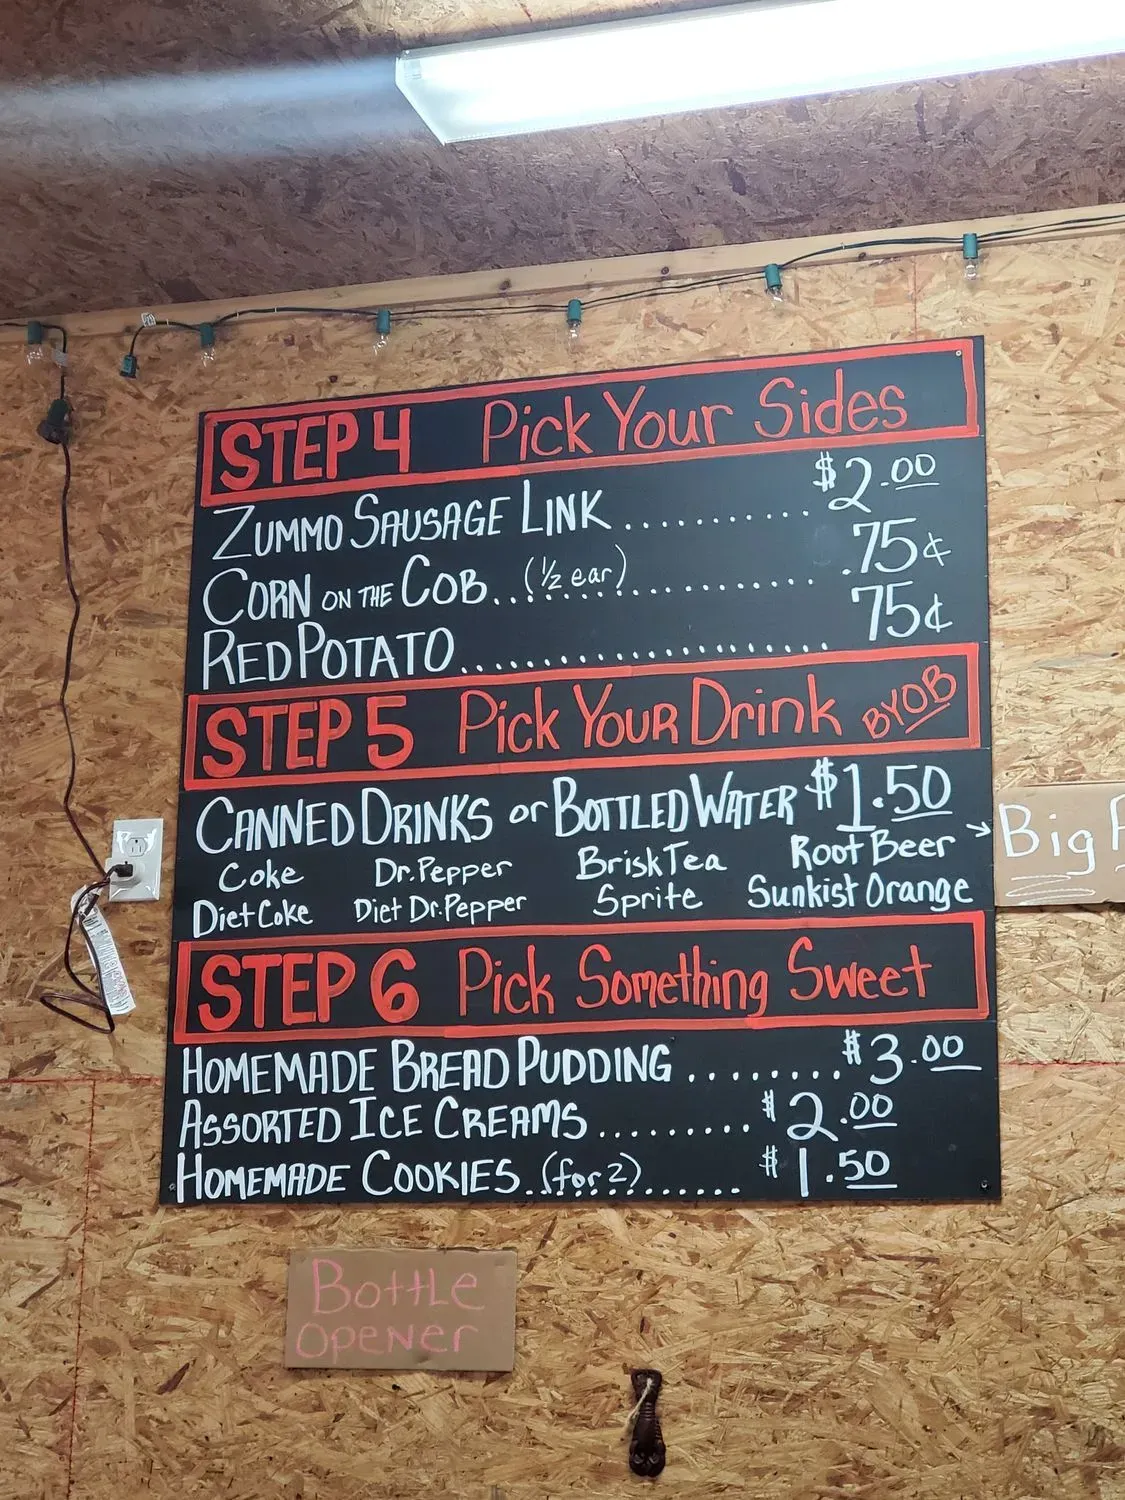 STEP 4 Pick Your Sides
ZUMMO SAUSAGE LINK............ $2.00
CORN ON THE COB...(½ ear)............ .75¢
RED POTATO.................. 75¢
STEP 5 Pick YOUR Drink BYOB
CANNED DRINKS or BOTTLED WATER $1.50
Coke Dr. Pepper Brisk Tea Root Beer →
Diet Coke Diet Dr. Pepper Sprite Sunkist Orange
Big
STEP 6 Pick Something Sweet
HOMEMADE BREAD PUDDING........ $3.00
ASSORTED ICE CREAMS......... $2.00
HOMEMADE COOKIES..(for 2)....... $1.50
BOTTLE
OPENER